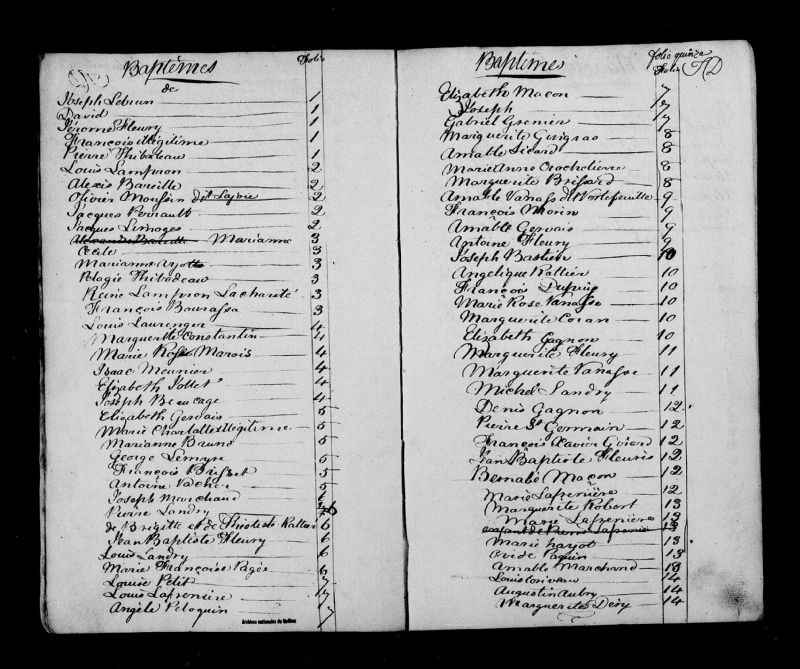 Baptêmes Folio
de
Joseph Lebrun 1
David 1
Jérome Fleury 1
François illégitime 1
Pierre Thibodeau 1
Louis Lampron 2
Alexis Bareille 2
Olivier Mousson dit Lajoie 2
Jacques Perrault 2
Jacques Limoges 2
Marianne 3
Cécile 3
Marianne Ayotte 3
Pelagie Thibodeau 3
Reine Lampron Lacharité 3
François Bourassa 3
Louis Laurenger 4
Marguerite Constantin 4
Marie Rose Marois 4
Isaac Meunier 4
Elizabeth Pottet 4
Joseph Beaucage 4
Elizabeth Gervais 5
Marie Charlotte illégitime 5
Marianne Bruno 5
George Lemyre 5
François Brisset 5
Antoine Vacher 5
Joseph Marchand 6
Pierre Landry 6
de Brigitte et de Thiotiste Rattier 6
Jean Baptiste Fleury 6
Louis Landry 6
Marie Françoise Pagés 6
Louise Petit 7
Louis Lafreniere 7
Angèle Peloquin 7
Archives nationales du Québec
folio quinze
Baptêmes Folio
Elizabeth Macon 7
Joseph 7
Gabriel Grenier 7
Marguerite Guigras 8
Amable Sicard 8
Marie Anne Crochetiere 8
Marguerite Brissard 8
Amable Vanasse dit Vertefeuille 9
François Morin 9
Amable Gervais 9
Antoine Fleury 9
Joseph Bastien 10
Angelique Rattier 10
François Dupuis 10
Marie Rose Vanasse 10
Marguerite Coran 10
Elizabeth Gagnon 10
Marguerite Fleury 11
Marguerite Vanasse 11
Michel Landry 11
Denis Gagnon 12
Pierre St Germain 12
François Xavier Girard 12
Jean Baptiste Fleurie 12
Bernabé Maçon 12
Marie Lafrenière 12
Marguerite Robert 13
Marie Lafrenière 13
enfant de Pierre Lafrenière 13
Marie hayot 13
Ovide Paquin 13
Amable Marchand 13
Louis Loriveau 14
Augustin Aubry 14
Marguerite Dery 14